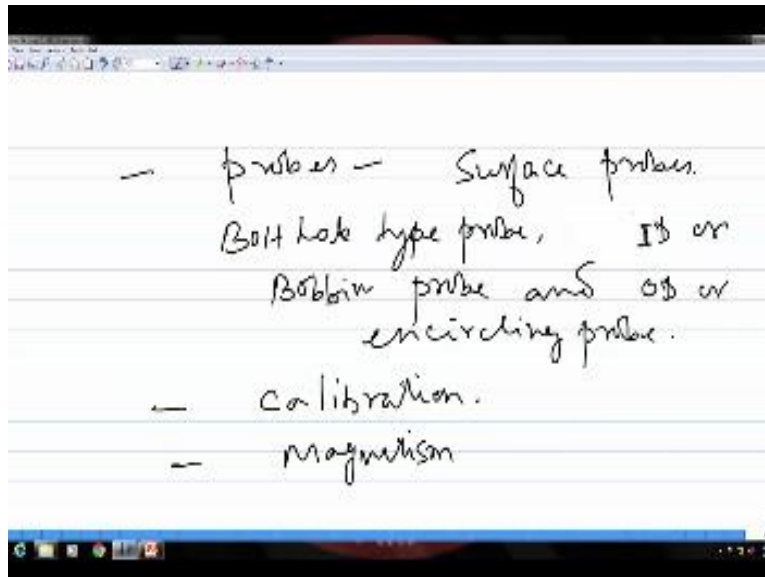 - probes - Surface probes.
Bolt hole type probe, ID or
Bobbin probe and OD or
encircling probe.
- Calibration.
- Magnetism